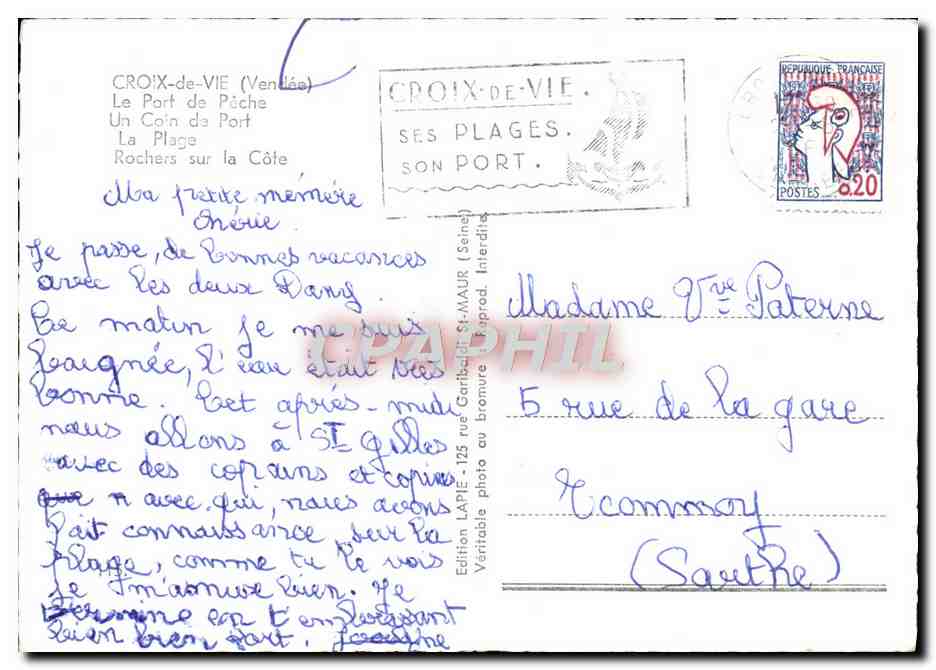 CROIX-de-VIE (Vendée)
Le Port de Pêche
Un Coin de Port
La Plage
Rochers sur la Côte
CROIX-DE-VIE.
SES PLAGES.
SON PORT.
REPUBLIQUE FRANCAISE
POSTES 0.20
Ma petite mémère
chérie
Je passe, de bonnes vacances
avec les deux Dany.
Ce matin je me suis
baignée, l'eau était très
bonne. Cet après-midi
nous allons à St Gilles
avec des copains et copines
avec qui, nous avons
fait connaissance sur la
plage, comme tu le vois
je m'amuse bien. Je
termine en t'embrassant
bien bien fort.
Edition LAPIE - 125 rue Garibaldi St-MAUR (Seine)
Véritable photo au bromure - Reprod. Interdite
Madame Vve Paterne
5 rue de la gare
Ecommoy
(Sarthe)
CPAPHIL